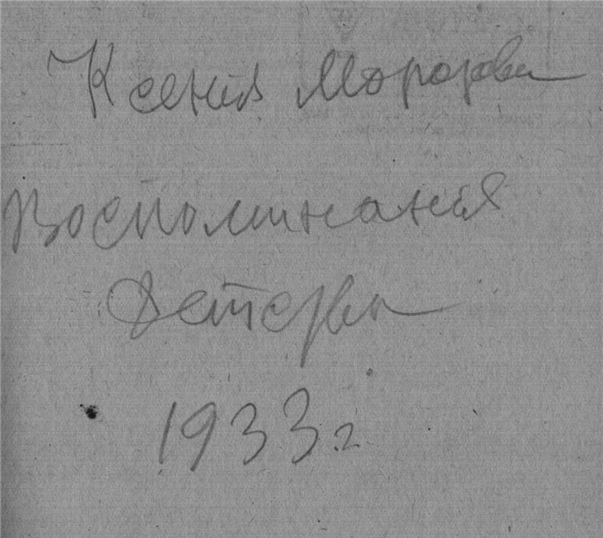 Ксения Морозова
Воспоминания
детства
1933 г.